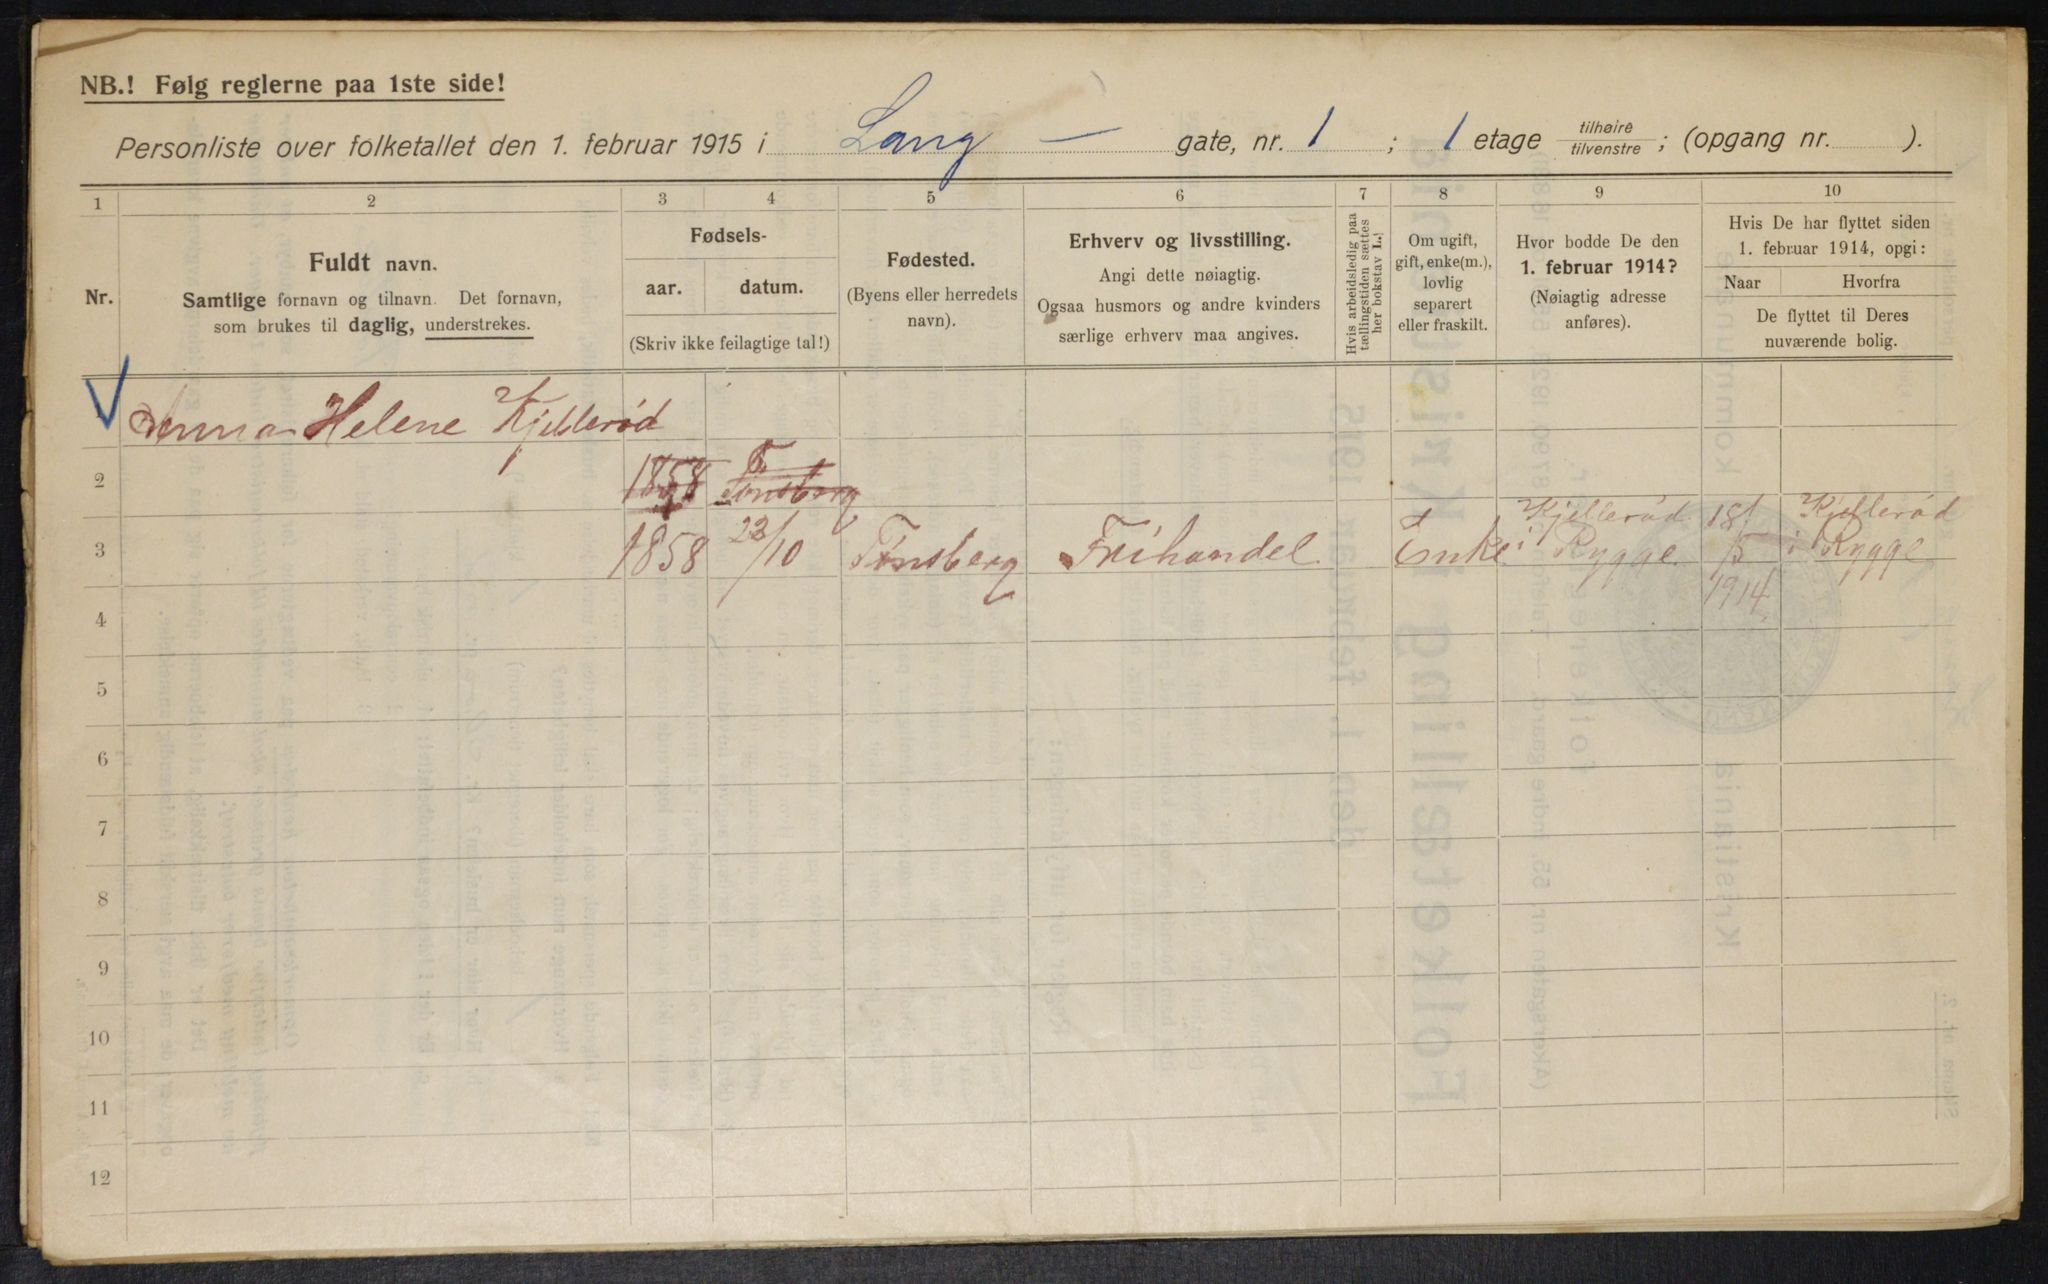 NB.! Følg reglerne paa 1ste side!
Personliste over folketallet den 1. februar 1915 i Lang — gate, nr. 1 ; 1 etage tilhøire tilvenstre ; (opgang nr. ).
1 2 3 4 5 6 7 8 9 10
Nr.
Fuldt navn.
Samtlige fornavn og tilnavn. Det fornavn,
som brukes til daglig, understrekes.
Fødsels-
aar. datum.
(Skriv ikke feilagtige tal!)
Fødested.
(Byens eller herredets
navn).
Erhverv og livsstilling.
Angi dette nøiagtig.
Ogsaa husmors og andre kvinders
særlige erhverv maa angives.
Hvis arbeidsledig paa
tællingstiden sættes
her bokstav L.
Om ugift,
gift, enke(m.),
lovlig
separert
eller fraskilt.
Hvor bodde De den
1. februar 1914?
(Nøiagtig adresse
anføres).
Hvis De har flyttet siden
1. februar 1914, opgi:
Naar Hvorfra
De flyttet til Deres
nuværende bolig.
Anna Helene Kjellerød
2 1858 Tønsberg
3 1858 23/10 Tønsberg Frihandel Enke Kjellerød i Rygge 18/5 1914 Kjellerød i Rygge
4
5
6
7
8
9
10
11
12